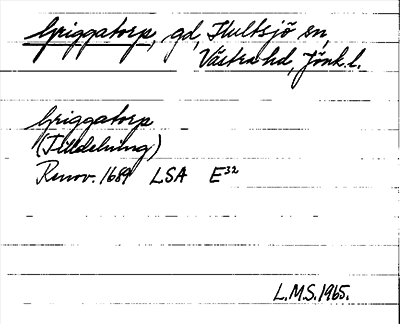 Griggatorp, gd, Hultsjö sn,
Västra hd, Jönk.l.
Griggatorp
(Tilldelning)
Renov. 1689 LSA E32
L.M.S. 1965.